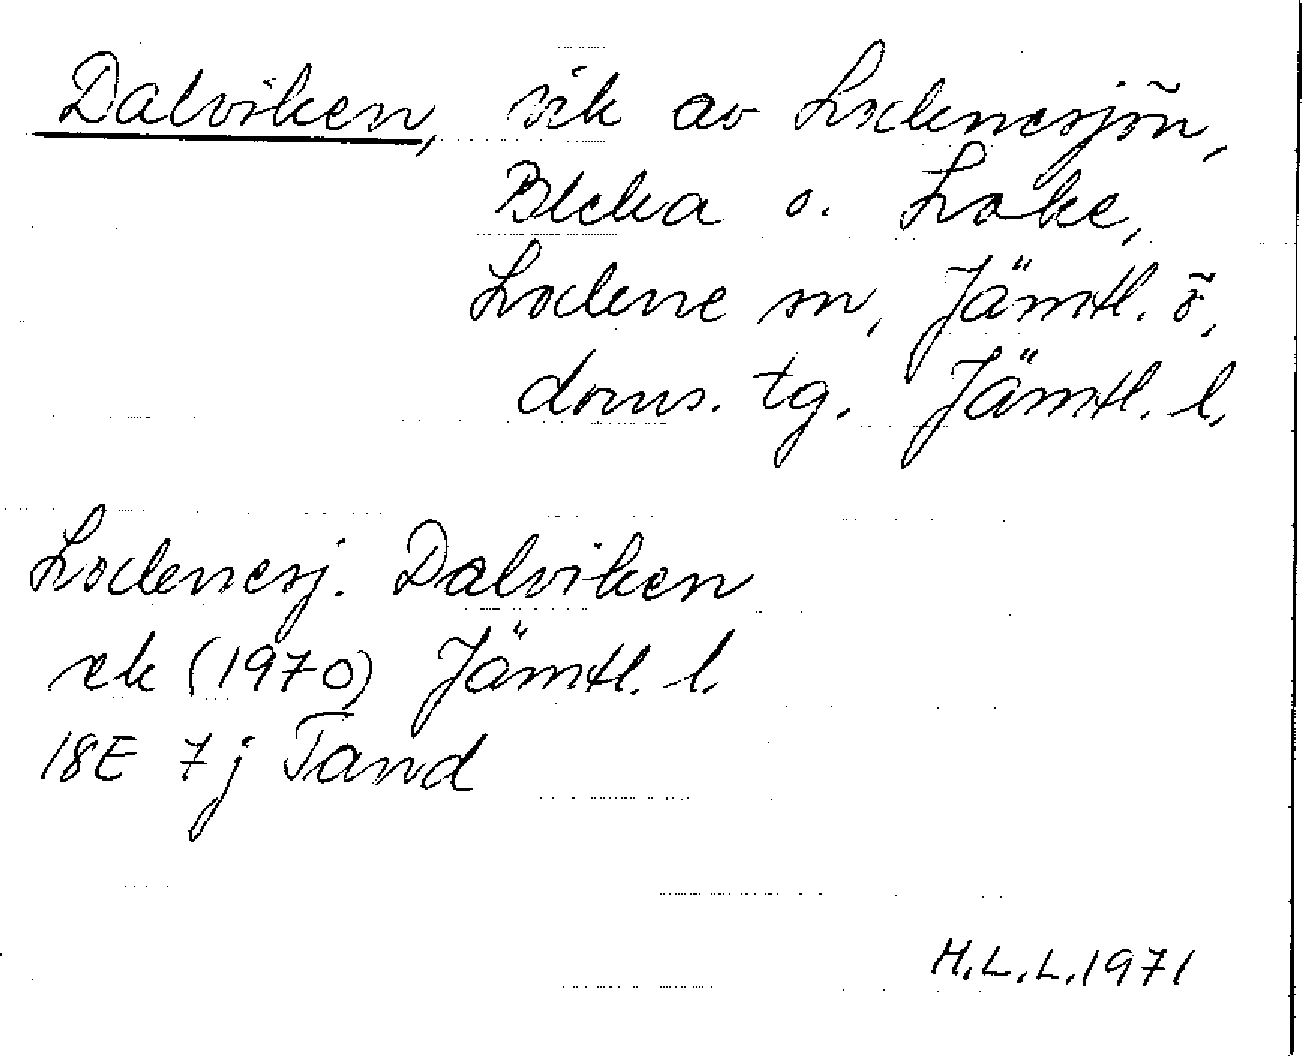 Dalviken, vik av Locknesjön,
Bleka o. Loke,
Lockne sn, Jämtl. ö.
doms. tg. Jämtl. l.
Locknesj. Dalviken
ek (1970) Jämtl. l.
18E 7j Tand
H.L.L. 1971